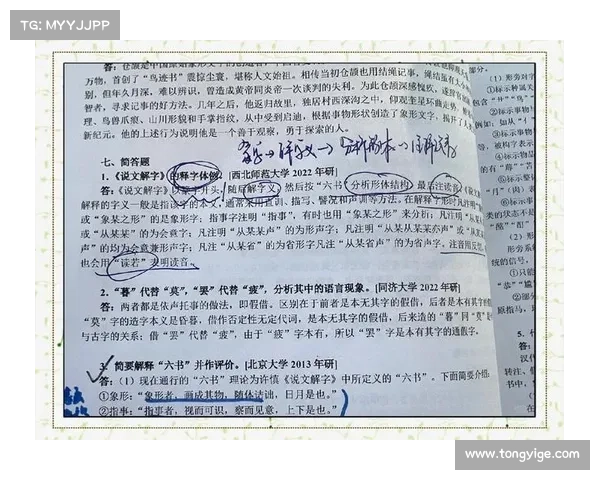 TG: MYYJJPP
答：仓颉是中国原始象形文字的创造者，
万物，首创了“鸟迹书”震惊尘寰，堪称人文始祖。相传当初仓颉也用结绳记事，绳结虽有大
别，但年久月深，难以辨识，曾造成黄帝同炎帝一次谈判的失利。为此仓颉深感愧疚，遂辞官
智者，寻求记事的好方法。几年之后，他返归故里，独居村西深沟之中，仰观奎星环曲走势，
理、鸟兽爪痕、山川形貌和手掌指纹，从中受到启迪，根据事物形状创造了象形文字，揭开了人
新纪元。他的上述行为说明他是一个善于观察，勇于探索的人。
七、简答题
1.《说文解字》的释字体例。[西北师范大学 2022 年研]
答：《说文解字》以篆字开头，随后解字义，然后按“六书”分析形体结构，最后注读音。《说文
解释的字义一般是指该字的本义，通常采用直训、描写、譬况和声训等方法，在解释字形时凡注明“
或“象某之形”的是象形字；指事字注明“指事”，有时也用“象某之形”来分析；凡注明“从某
或“从某某”的为会意字；凡注明“从某某声”的为形声字；凡注明“从某从某某亦声”或“从某
声”的均为会意兼形声字；凡注“从某省”的为省形字凡注“从某省声”的为省声字，注音用反切，
也会用“读若”来明读音。
2.“暮”代替“莫”，“罢”代替“疲”，分析其中的语言现象。[同济大学 2022 年研]
答：两者都是依声托事的做法，即假借。区别在于前者是本无其字的假借，后者是本有其字的
“莫”字的造字本义是昏暮，借作否定性无定代词，是本无其字的假借，后来造的“暮”同“莫”
与古字的关系；借“罢”代替“疲”，由于“疲”字本有，所以“罢”字是本有其字的通假字。
3. 简要解释“六书”并作评价。[北京大学 2013 年研]
答：（1）现在通行的“六书”理论为许慎《说文解字》中所定义的“六书”。下面简要介绍：
①象形：“象形者，画成其物，随体诘诎，日月是也。”
②指事：“指事者，视而可识，察而见意，上下是也。”
www.tongyige.com